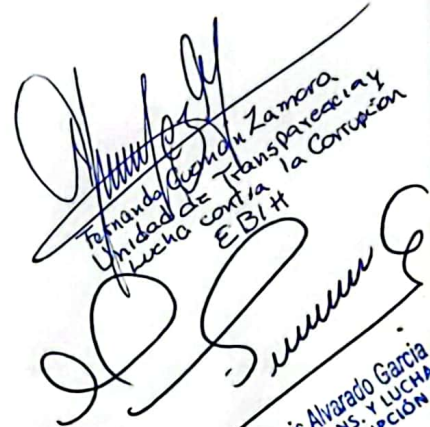 Fernanda Guzman Zamora
Unidad de Transparencia y
Lucha contra la Corrupción
EBIH
Alvarado Garcia
NS. Y LUCHA
PCIÓN